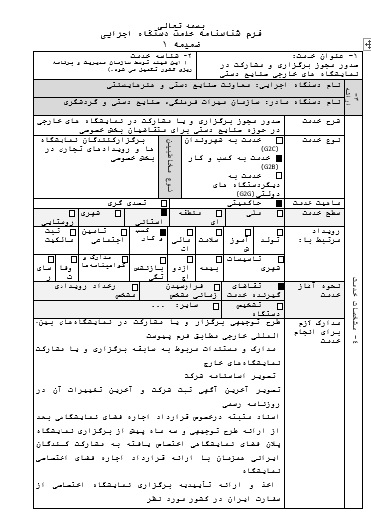 بسمه تعالی
فرم شناسنامه خدمت دستگاه اجرایی
ضمیمه ۱
۱- عنوان خدمت:
صدور مجوز برگزاری و مشارکت در
نمایشگاه های خارجی صنایع دستی
۲- شناسه خدمت
( این فیلد توسط سازمان مدیریت و برنامه
ریزی کشور تکمیل می شود.)
۳- ارائه
نام دستگاه اجرایی: معاونت صنایع دستی و هنرهای سنتی
نام دستگاه مادر: سازمان میراث فرهنگی، صنایع دستی و گردشگری
۴- مشخصات خدمت
شرح خدمت
صدور مجوز برگزاری و یا مشارکت در نمایشگاه های خارجی
در حوزه صنایع دستی برای متقاضیان بخش خصوصی
نوع خدمت
خدمت به شهروندان
(G2C)
خدمت به کسب و کار
(G2B)
خدمت به
دیگر دستگاه های
دولتی(G2G)
نوع مخاطبین
برگزارکنندگان نمایشگاه
ها و رویدادهای تجاری در
بخش خصوصی
ماهیت خدمت
حاکمیتی
تصدی گری
سطح خدمت
ملی
منطقه
ای
استانی
شهری
روستایی
رویداد
مرتبط با:
تولد
آموز
ش
سلامت
مالی
ات
کسب
و کار
تامین
اجتماعی
ثبت
مالکیت
تاسیسات
شهری
بیمه
ازدو
اج
بازنشس
تگی
مدارک و
گواهینامه‌ها
وفا
ت
سای
ر
نحوه آغاز
خدمت
تقاضای
گیرنده خدمت
فرارسیدن
زمانی مشخص
رخداد رویدادی
مشخص
تشخیص
دستگاه
سایر: ...
مدارک لازم
برای انجام
خدمت
طرح توجیهی برگزار و یا مشارکت در نمایشگاه‌های بین-
المللی خارجی مطابق فرم پیوست
مدارک و مستندات مربوط به سابقه برگزاری و یا مشارکت
نمایشگاه‌های خارج
تصویر اساسنامه شرکت
تصویر آخرین آگهی ثبت شرکت و آخرین تغییرات آن در
روزنامه رسمی
اسناد مثبته درخصوص قرارداد اجاره فضای نمایشگاهی بعد
از ارائه طرح توجیهی و سه ماه پیش از برگزاری نمایشگاه
پلان فضای نمایشگاهی اختصاص یافته به مشارکت کنندگان
ایرانی همزمان با ارائه قرارداد اجاره فضای اختصاصی
نمایشگاه
اخذ و ارائه تأییدیه برگزاری نمایشگاه اختصاصی از
سفارت ایران در کشور مورد نظر